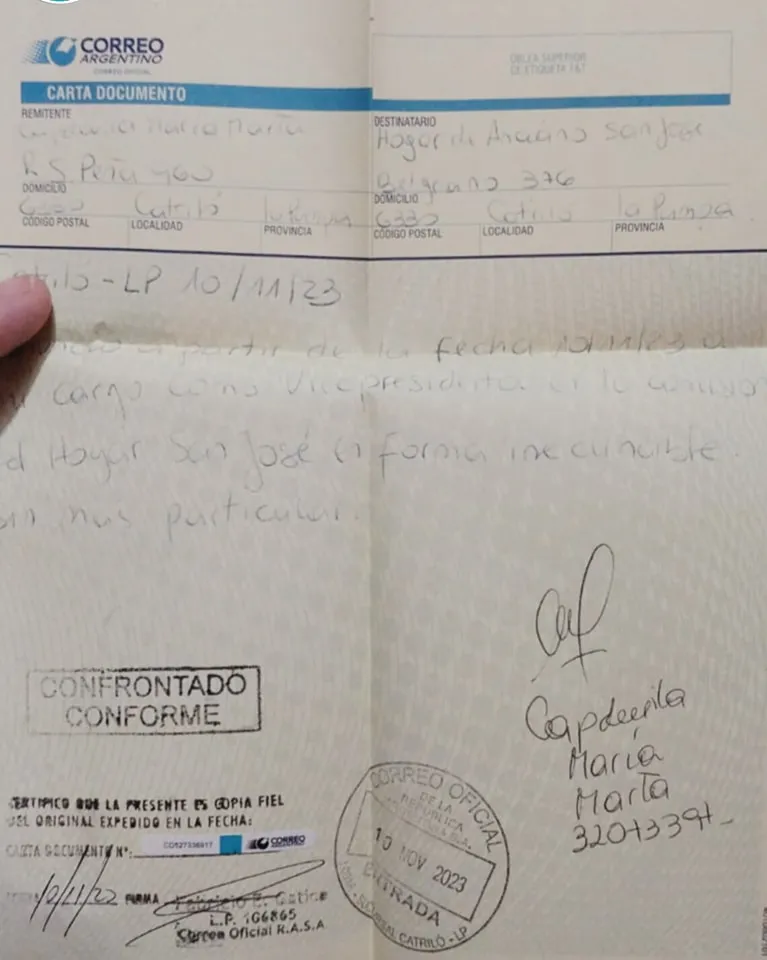 CORREO
ARGENTINO
CORREO OFICIAL
OBLEA SUPERIOR
DE ETIQUETA 1&T
CARTA DOCUMENTO
REMITENTE
María Marta
R S Peña 460
DOMICILIO
6330 Catriló La Pampa
CÓDIGO POSTAL LOCALIDAD PROVINCIA
DESTINATARIO
Hogar de Anciano San José
Belgrano 376
DOMICILIO
6330 Catriló La Pampa
CÓDIGO POSTAL LOCALIDAD PROVINCIA
Catriló - LP 10/11/23
a partir de la fecha 10/11/23 a
cargo como Vicepresidenta
el Hogar San José en forma
mas particular.
CONFRONTADO
CONFORME
Capdevila
María
Marta
CERTIFICO QUE LA PRESENTE ES COPIA FIEL
DEL ORIGINAL EXPEDIDO EN LA FECHA:
CARTA DOCUMENTO Nº: CORREO
FIRMA
L.P. 106865
Correo Oficial R.A.S.A
CORREO OFICIAL
DE LA
REPÚBLICA
10 NOV 2023
ENTRADA
CATRILÓ - LP